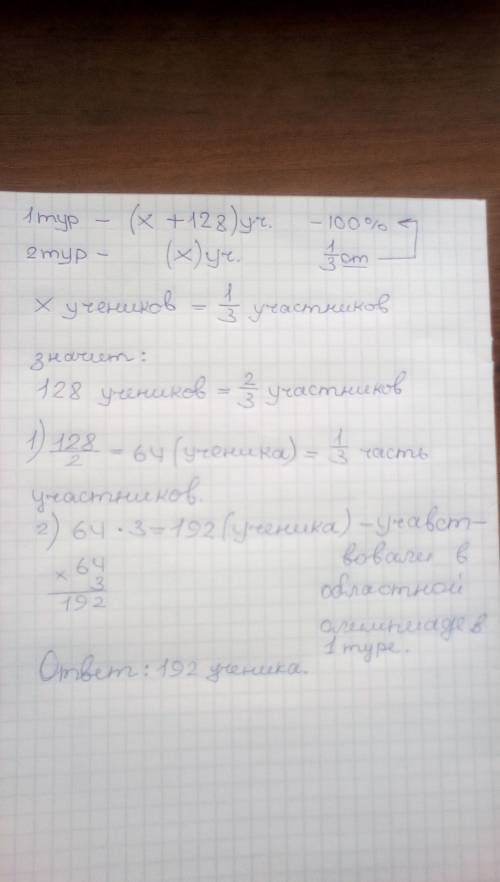 1 тур – (x + 128) уч. – 100%
2 тур – (x) уч. 1/3 от
x учеников = 1/3 участников
значит:
128 учеников = 2/3 участников
1) 128/2 = 64 (ученика) = 1/3 часть
участников.
2) 64 · 3 = 192 (ученика) – учавст–
вовали в
× 64
3
192
областной
олимпиаде в
1 туре.
Ответ: 192 ученика.